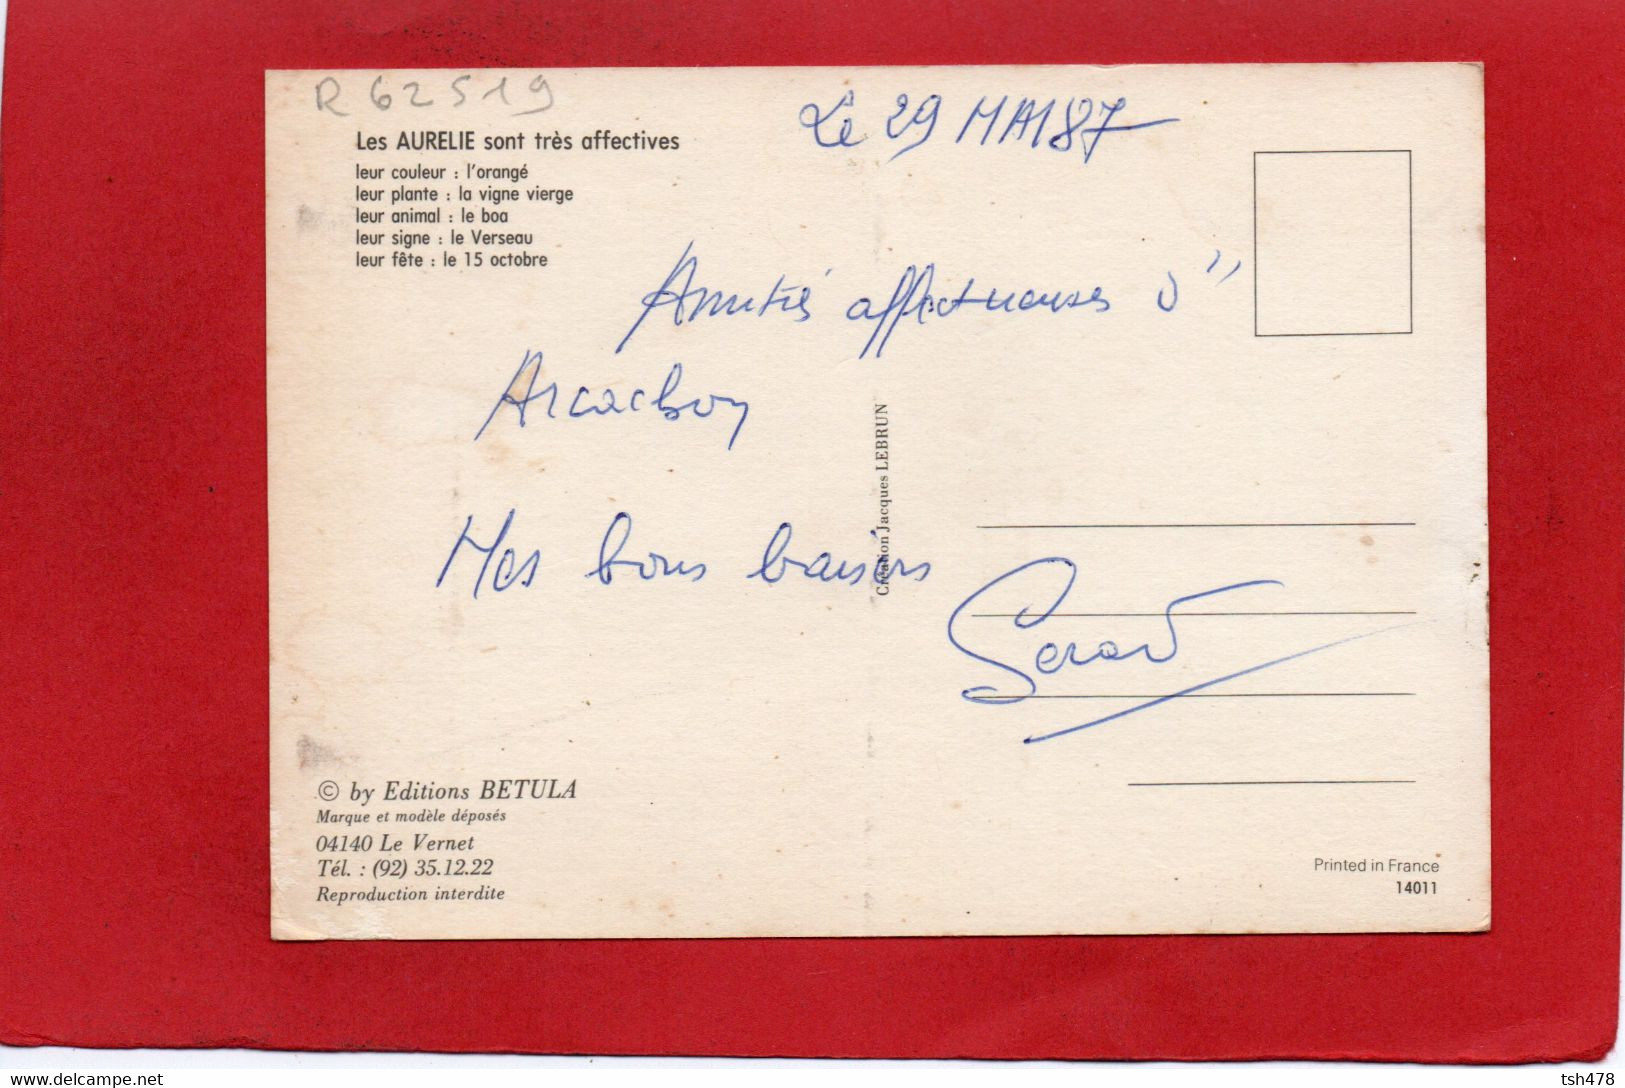 R 62519
Le 29 MAI 87
Les AURELIE sont très affectives
leur couleur : l'orangé
leur plante : la vigne vierge
leur animal : le boa
leur signe : le Verseau
leur fête : le 15 octobre
Amitiés affectueuses d''
Arcachon
Mes bons baisers
Gerard
Création Jacques LEBRUN
© by Editions BETULA
Marque et modèle déposés
04140 Le Vernet
Tél. : (92) 35.12.22
Reproduction interdite
Printed in France
14011
www.delcampe.net
tsh478